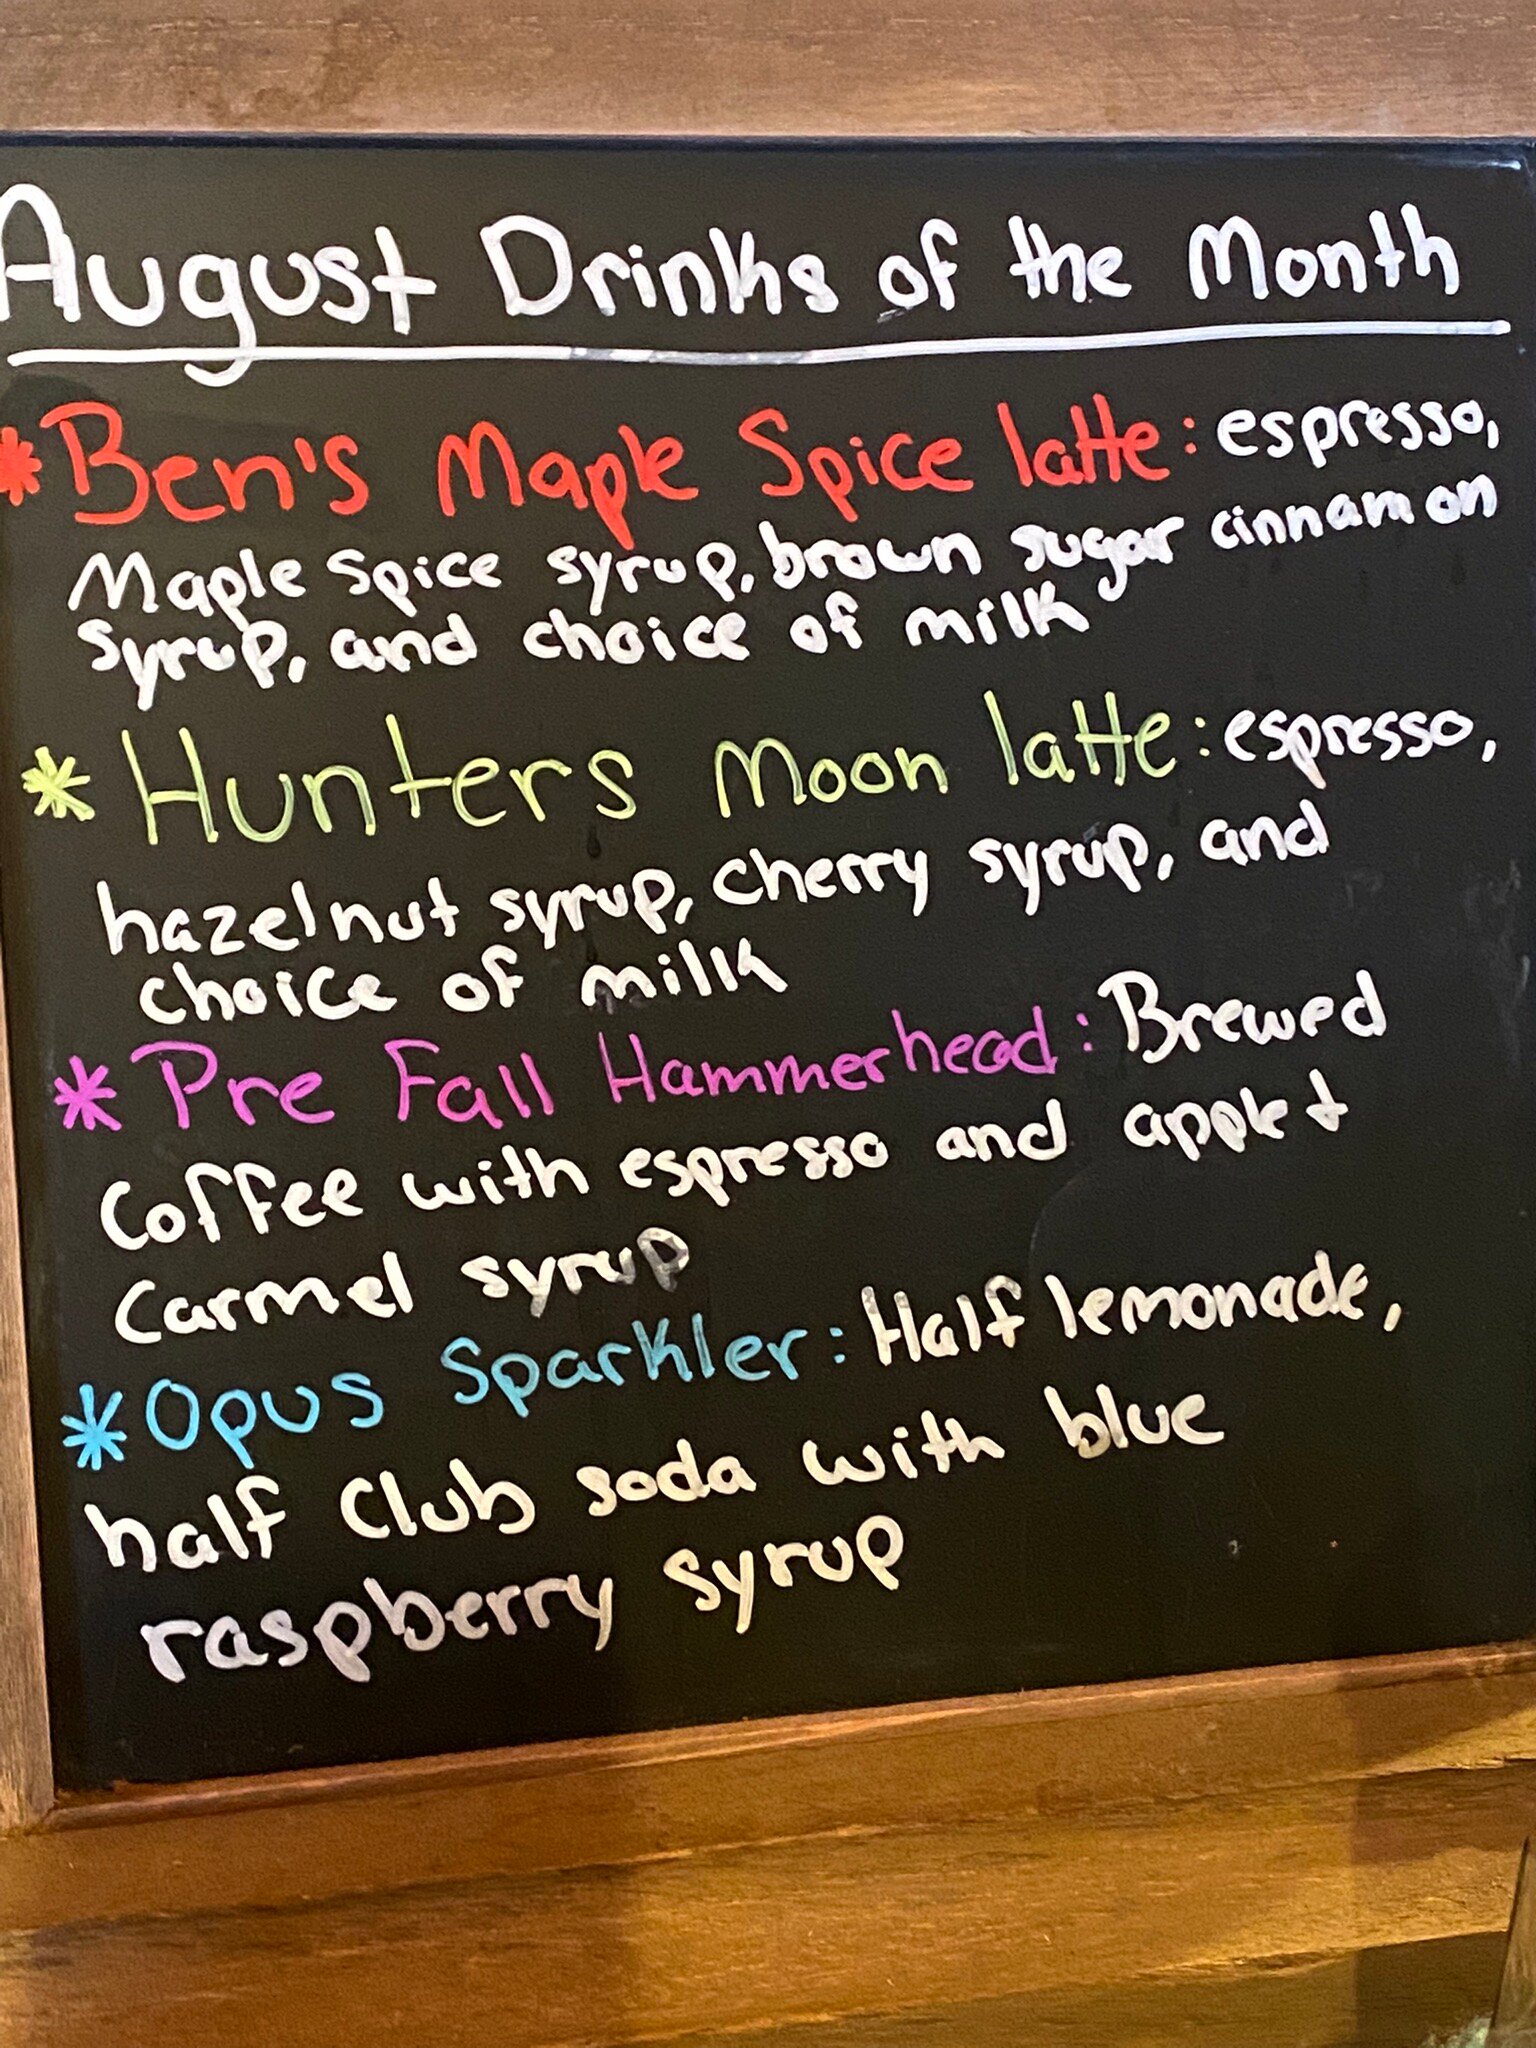 August Drinks of the Month
*Ben's Maple Spice latte: espresso,
Maple Spice syrup, brown sugar cinnamon
syrup, and choice of milk
*Hunters Moon latte: espresso,
hazelnut syrup, cherry syrup, and
choice of milk
*Pre Fall Hammerhead: Brewed
Coffee with espresso and apple +
Carmel syrup
*Opus Sparkler: Half lemonade,
half Club soda with blue
raspberry syrup